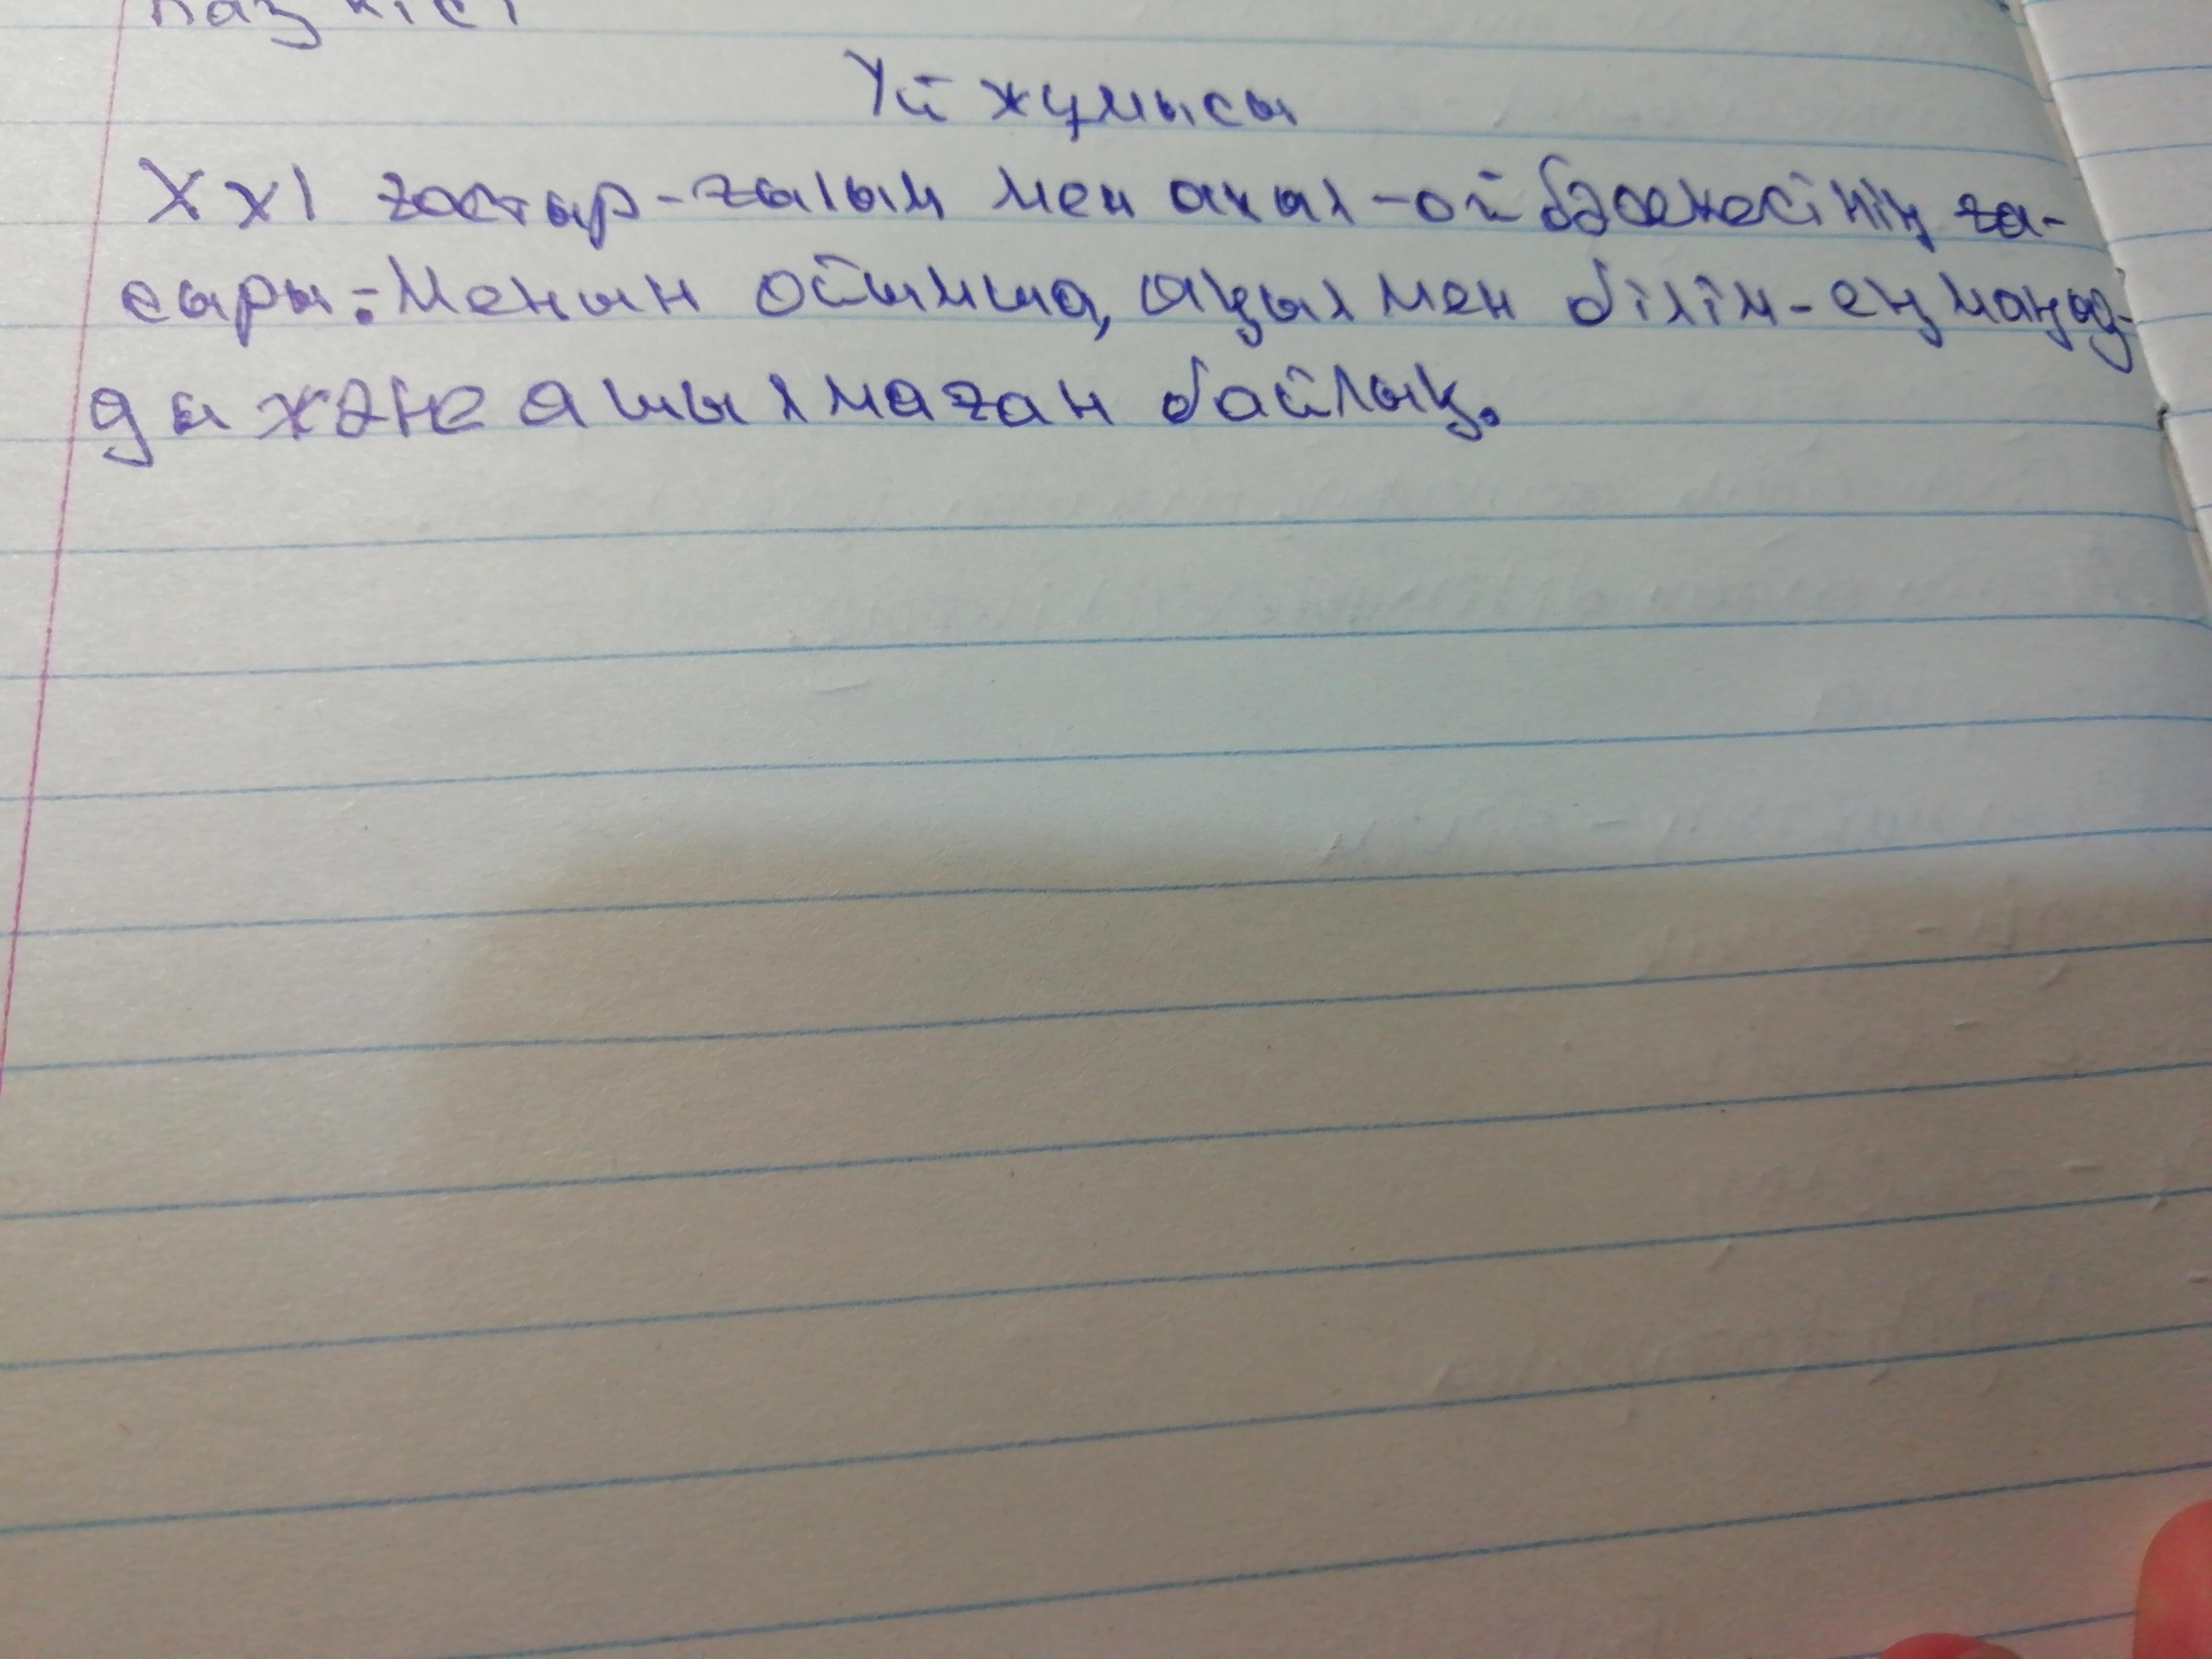 Үй жұмысы
ХХІ ғасыр-ғалым мен ақыл-ой бәсекесінің ға-
сыры: Менын ойымша, ақыл мен білім-ең маңыз-
ды және ашылмаған байлық.